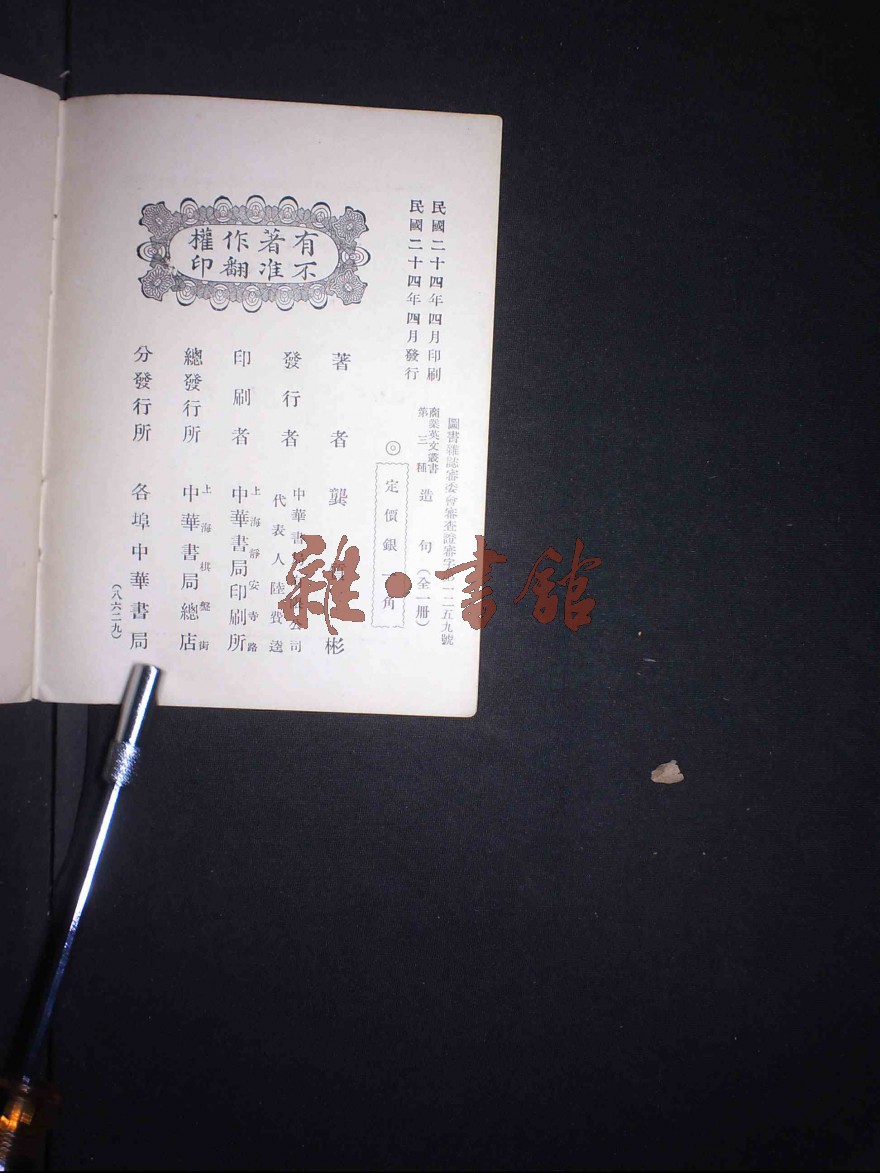 民國二十四年四月印刷
民國二十四年四月發行
圖書雜誌審委會審查證審字第一二五九號
商業英文叢書
第三種
造句（全一冊）
◎
定價銀 角
有著作權
不准翻印
著者 龔 彬
發行者 中華書局 公司
代表人 陸費逵
印刷者 上海靜安寺路
中華書局印刷所
總發行所 上海棋盤街
中華書局總店
分發行所 各埠中華書局
（八六二九）
雜·書館